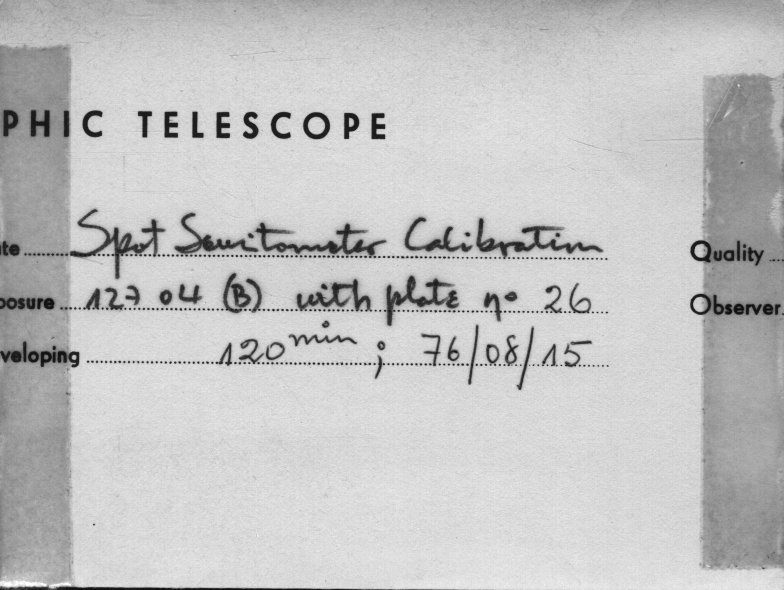 PHIC TELESCOPE
te Spot Sensitometer Calibration Quality
posure 12704 (B) with plate nº 26 Observer
veloping 120 min ; 76/08/15